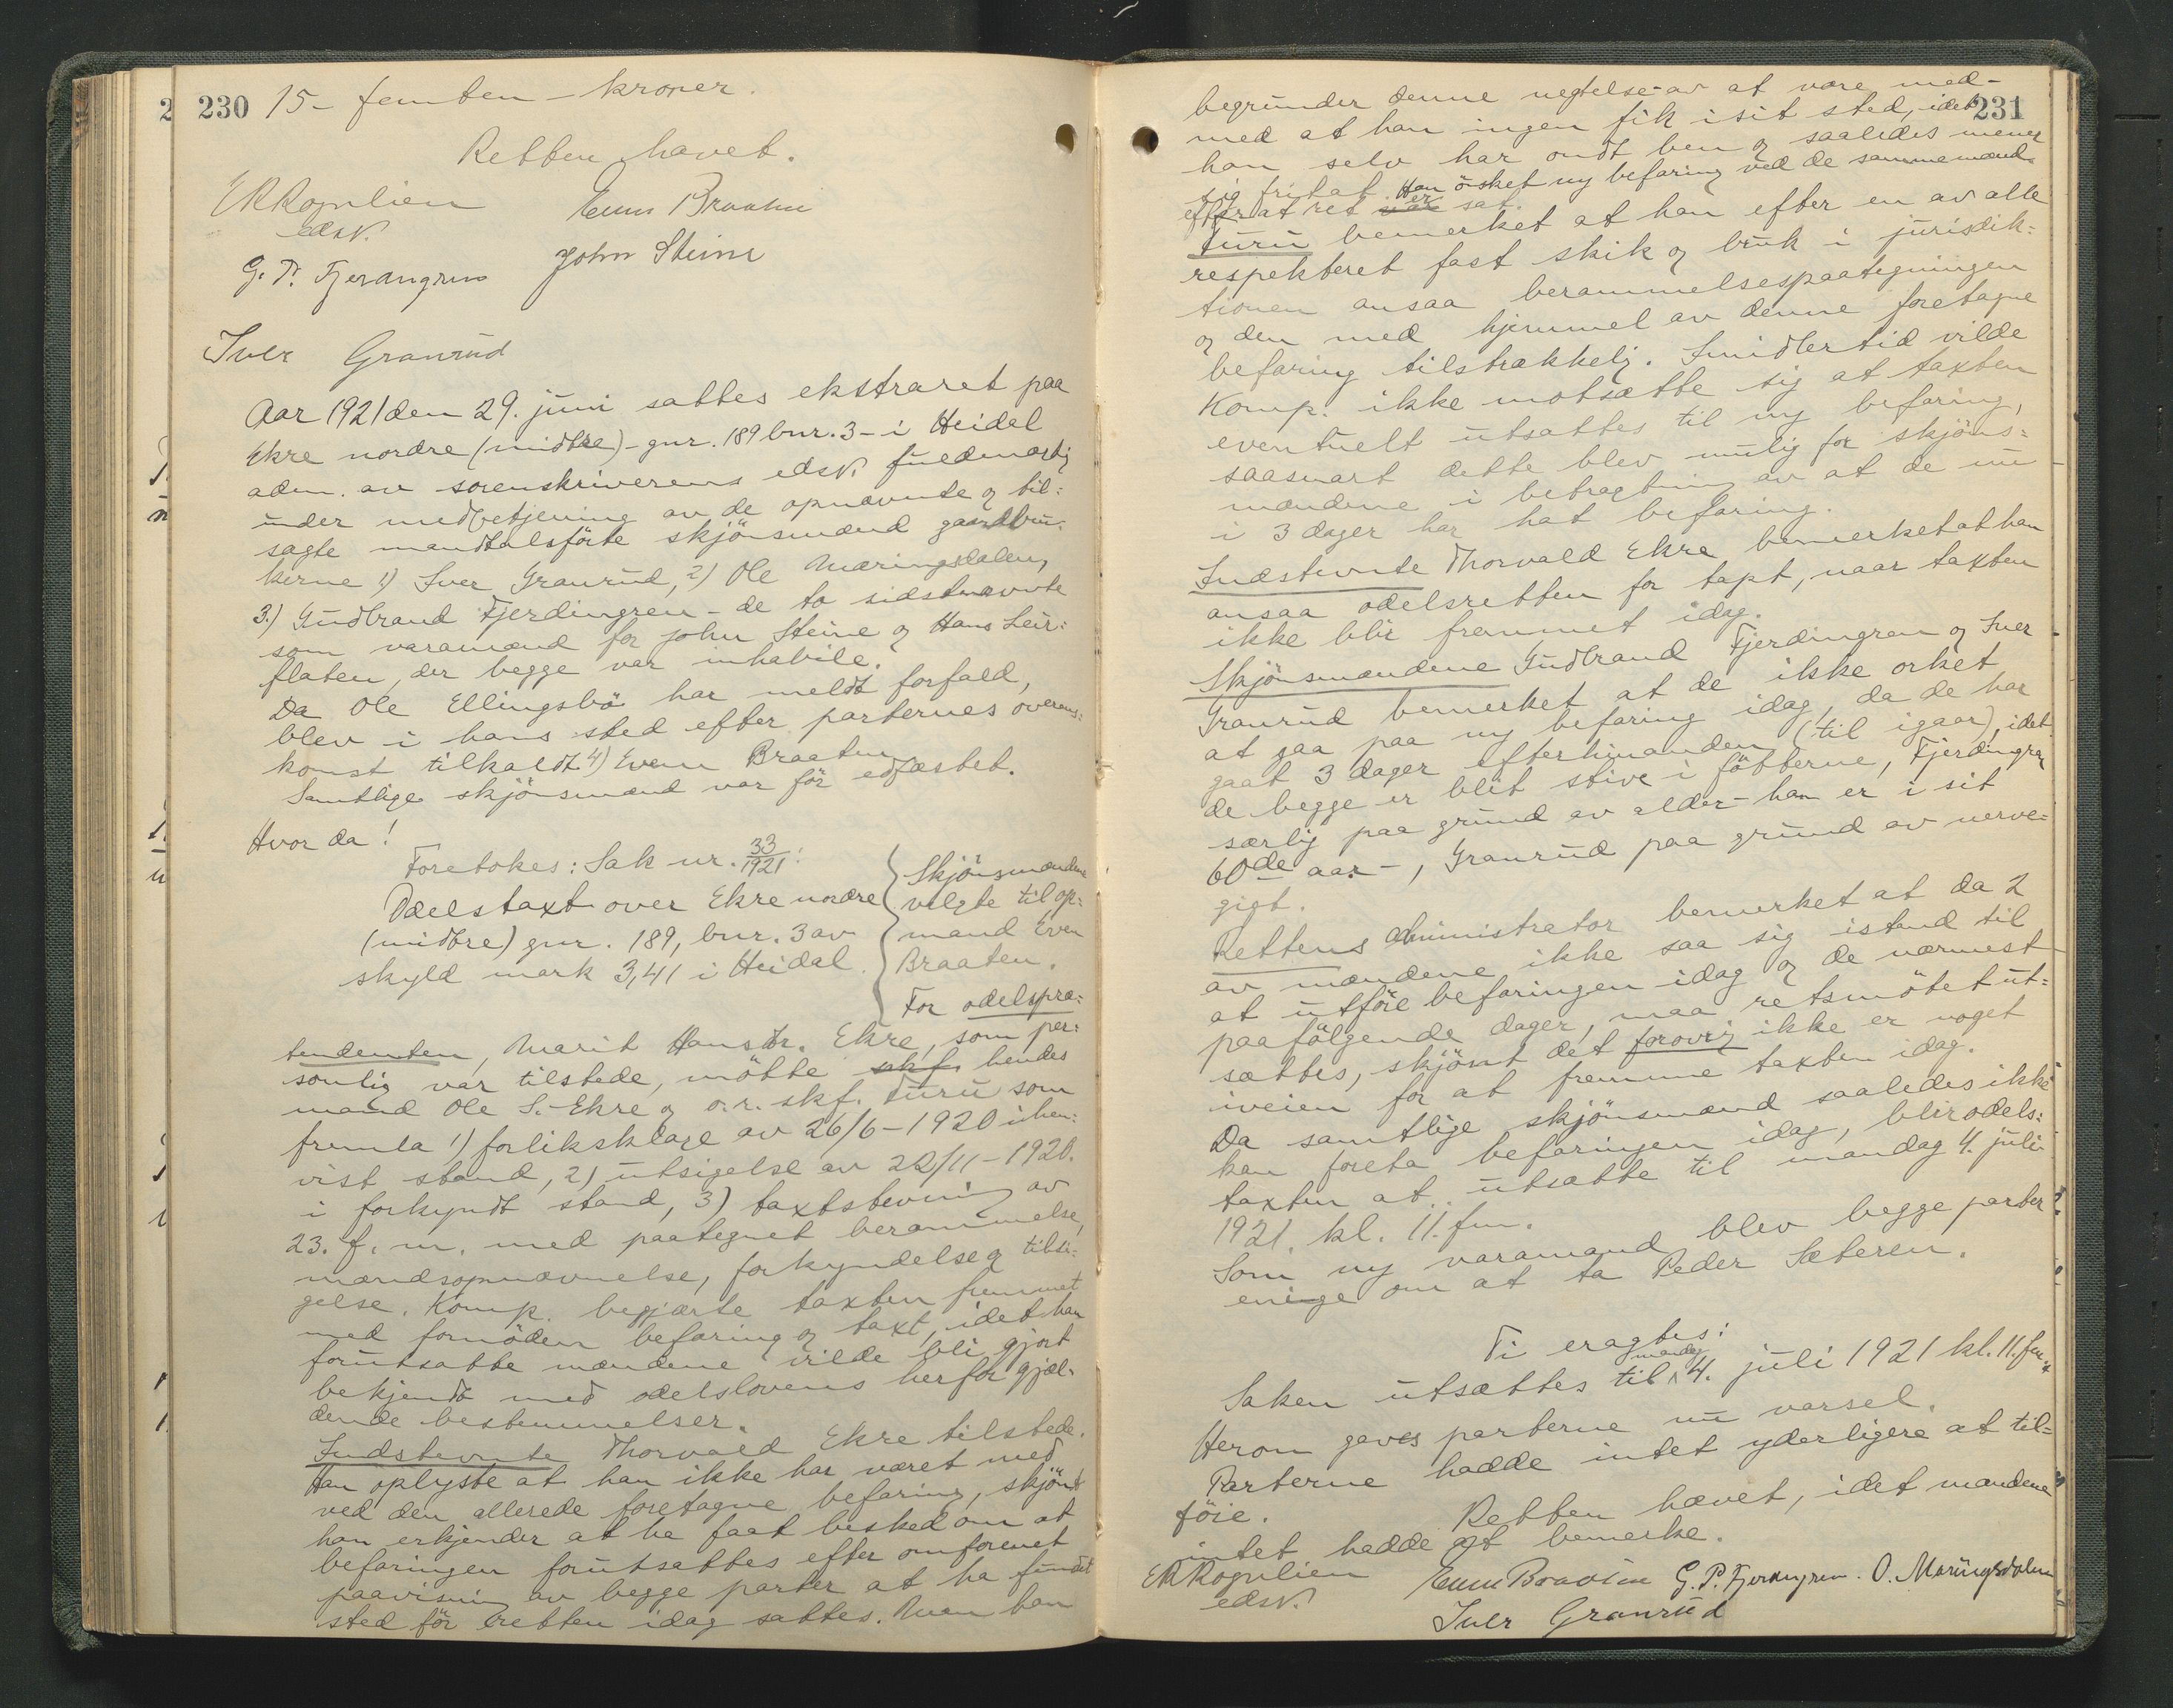 230 15- femten - kroner.
Retten hævet.
E R Rognlien Even Braaten
edsv.
G. P. Fjerdingren John Steine
Iver Granrud
Aar 1921 den 29. juni sattes ekstraret paa
Ekre nordre (midtre) - gnr. 189 bnr. 3 - i Heidal
adm. av sorenskriverens edsv. fuldmægtig
under medbetjening av de opnævnte og til-
sagte mandtalsførte skjønsmænd gaardbru-
kerne 1) Iver Granrud, 2) Ole Mæringsdalen,
3.) Gudbrand Fjerdingren - de to sidstnævnte
som varamænd for John Steine og Hans Leir-
flaten, der begge var inhabile.
Da Ole Ellingsbø har meldt forfald,
blev i hans sted efter parternes overens-
komst tilkaldt 4) Even Braaten.
Samtlige skjønsmænd var før edfæstet.
Hvor da!
Foretokes: Sak nr. 33/1921:
Odelstaxt over Ekre nordre
(midtre) gnr. 189, bnr. 3 av
skyld mark 3,41 i Heidal.
Skjønsmændene
valgte til op-
mand Even
Braaten.
For odelspræ-
tendenten, Marit Hansdr. Ekre, som per-
sonlig var tilstede, møtte skf. hendes
mand Ole S. Ekre og o.r. skf. Turu som
fremla 1) forliksklage av 26/6 - 1920 i hen-
vist stand, 2) utsigelse av 22/11 - 1920.
i forkyndt stand, 3) taxtstevning av
23. f. m. med paategnet berammelse,
mændsopnævnelse, forkyndelse og tilsi-
gelse. Komp. begjærte taxten fremmet
med fornøden befaring og taxt, idet han
forutsatte mændene vilde bli gjort
bekjendt med odelslovens herfor gjæl-
dende bestemmelser.
Indstevnte Thorvald Ekre tilstede.
Han oplyste at han ikke har været med
ved den allerede foretagne befaring, skjønt
han erkjender at ha faat besked om at
befaringen forutsattes efter omforenet
paavisning av begge parter at ha fundet
sted før retten idag sattes. Men han
231
begrunder denne negtelse av at være med-
med at han ingen fik i sit sted, idet
han selv har ondt ben og saaledes mener
sig fritat. Han ønsket ny befaring ved de samme mænd
efterat ret er sat.
Turu bemerket at han efter en av alle
respekteret fast skik og bruk i jurisdik-
tionen ansaa berammelsespaategningen
og den med hjemmel av denne foretagne
befaring tilstrækkelig. Imidlertid vilde
Komp. ikke motsætte sig at taxten
eventuelt utsattes til ny befaring,
saasnart dette blev mulig for skjøns-
mændene i betragtning av at de nu
i 3 dager har hat befaring.
Indstevnte Thorvald Ekre bemerket at han
ansaa odelsretten for tapt, naar taxten
ikke blir fremmet idag.
Skjønsmændene Gudbrand Fjerdingren og Iver
Granrud bemerket at de ikke orket
at gaa paa ny befaring idag, da de har
gaat 3 dager efterhinanden (til igaar), idet
de begge er blit stive i føtterne, Fjerdingren
særlig paa grund av alder - han er i sit
60de aar -, Granrud paa grund av nerve-
gigt.
Rettens administrator bemerket at da 2
av mændene ikke saa sig istand til
at utføre befaringen idag og de nærmest
paafølgende dager, maa retsmøtet ut-
sættes, skjønt det forøvrig ikke er noget
iveien for at fremme taxten idag.
Da samtlige skjønsmænd saaledes ikke
kan foreta befaringen idag, blir odels-
taxten at utsætte til mandag 4. juli
1921. kl. 11. fm.
Som ny varamand blev begge parter
enige om at ta Peder Sæteren.
Ti eragtes:
Saken utsættes til mandag 4. juli 1921 kl. 11. fm.
Herom gaves parterne nu varsel.
Parterne hadde intet yderligere at til-
føie.
Retten hævet, idet mændene
intet hadde at bemerke.
E R Rognlien Even Braaten G. P. Fjerdingren. O. Mæringsdalen
edsv.
Iver Granrud